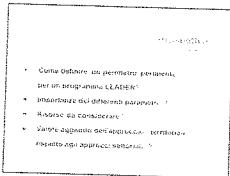 Come definire un perimetro pertinente
per un programma LEADER?
Importanza dei differenti parametri
Risorse da considerare
Valore aggiunto dell'approccio territoriale
rispetto agli approcci settoriali